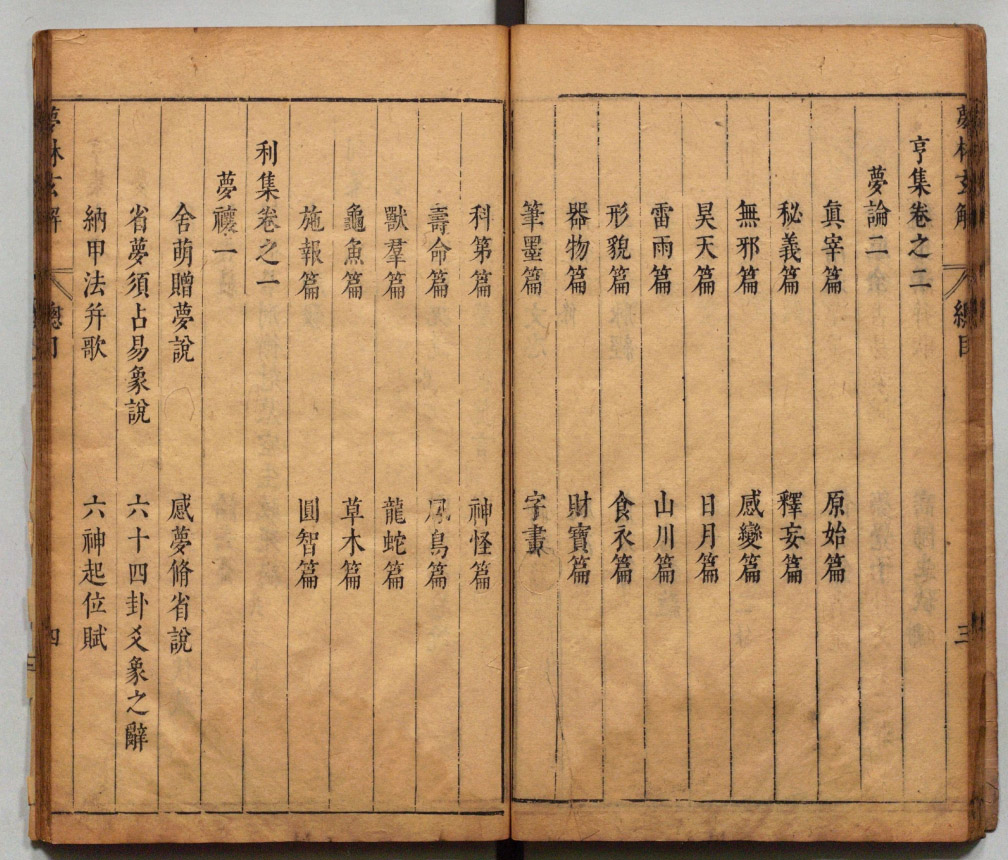 夢林玄解 總目 三
亨集卷之二
夢論二
眞宰篇 原始篇
秘義篇 釋妄篇
無邪篇 感變篇
昊天篇 日月篇
雷雨篇 山川篇
形貌篇 食衣篇
器物篇 財寶篇
筆墨篇 字畫
科第篇 神怪篇
壽命篇 鳳鳥篇
獸羣篇 龍蛇篇
龜魚篇 草木篇
施報篇 圓智篇
利集卷之一
夢禳一
舍萌贈夢說 感夢脩省說
省夢須占易象說 六十四卦爻象之辭
納甲法幷歌 六神起位賦
夢林玄解 總目 四